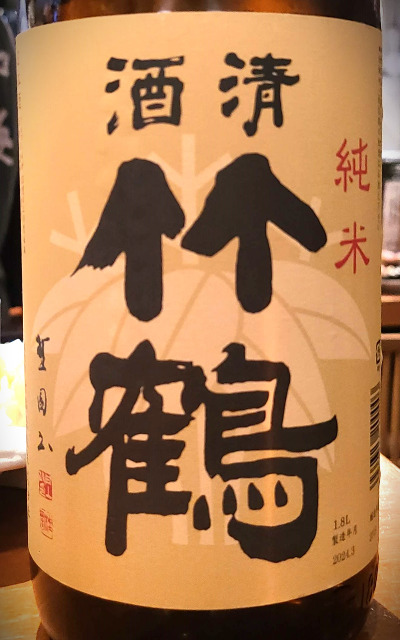 清酒
竹鶴
純米
1.8L
製造年月
2024.3